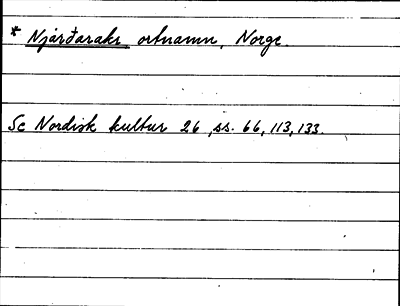 * Njarðarakr, ortnamn, Norge.
Se Nordisk kultur 26, ss. 66, 113, 133.